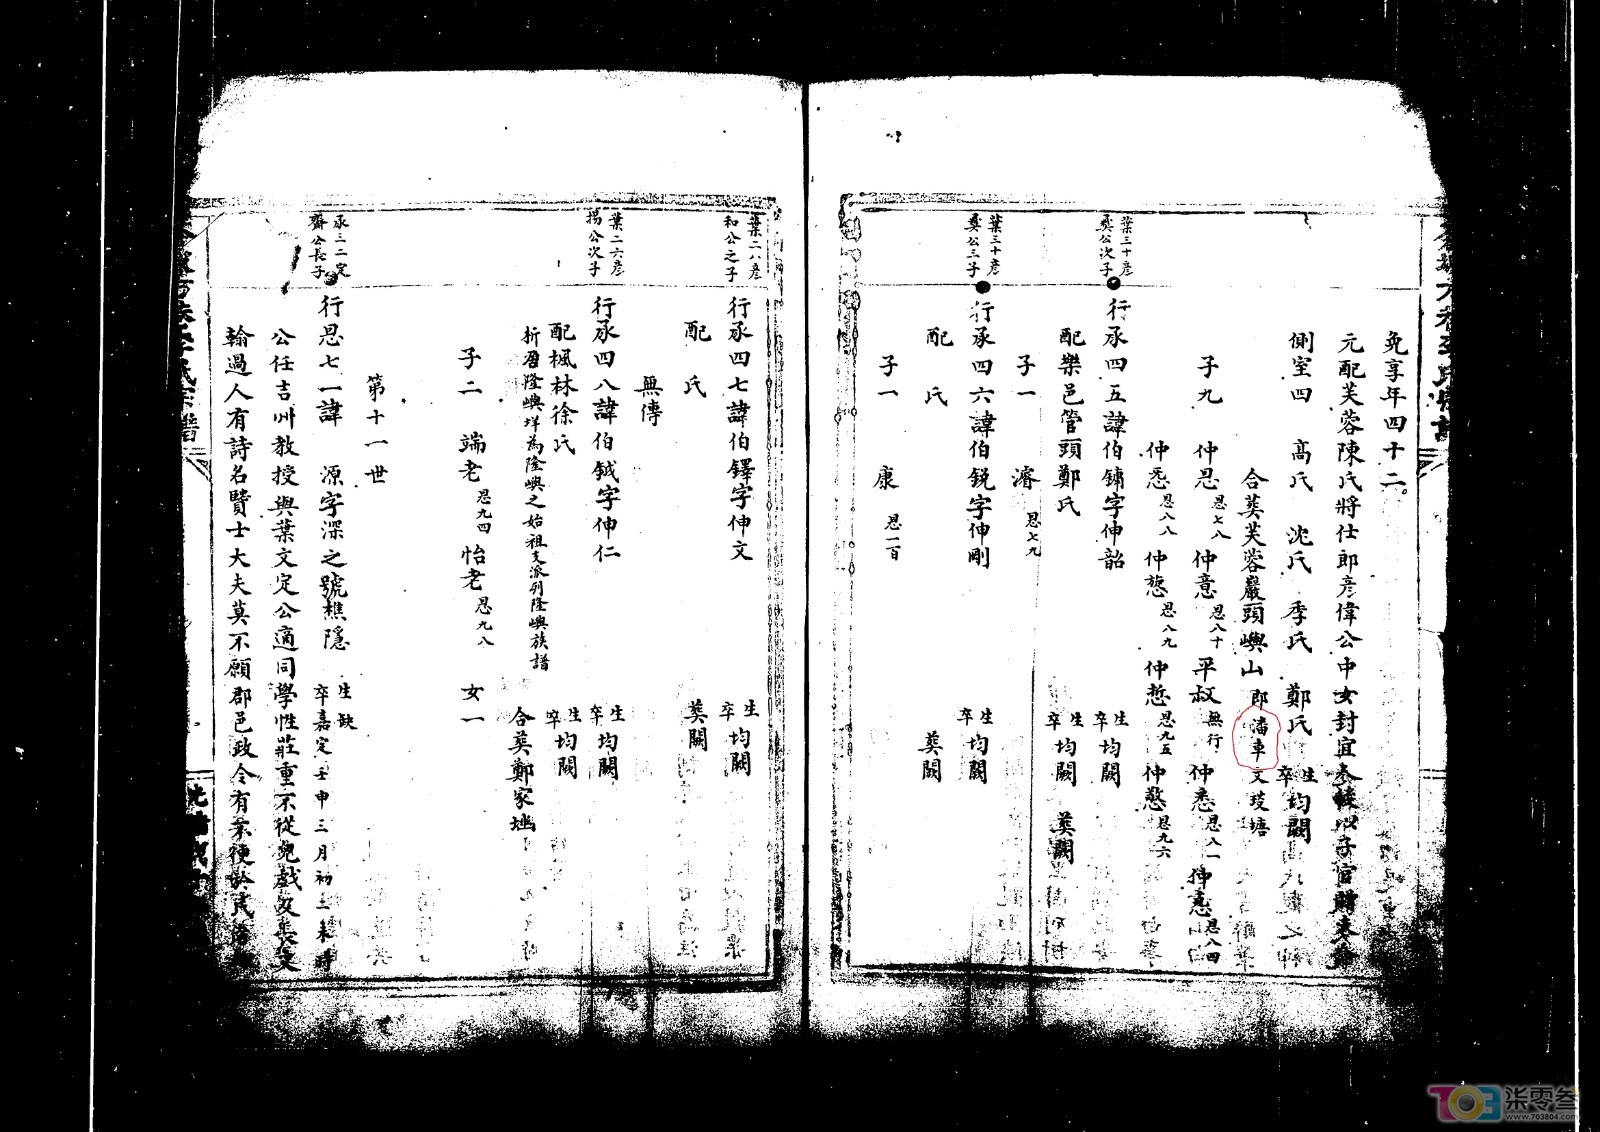 免享年四十二
元配芙蓉陳氏將仕郎彦偉公中女封宜
側室四 高氏 沈氏 季氏 鄭氏 生卒均闕
合葬芙蓉巖頭嶼山即潘車
子九 仲恩 恩七八 仲意 恩八十 平叔 無行 仲悉 恩八一 仲 恩八四
仲 恩八八 仲 恩八九 仲 恩九五 仲 恩九六
葉三十彦
公次子
行承四五諱伯鏞字伸韶 生卒均闕
配樂邑管頭鄭氏 生卒均闕 葬闕
子一 濬 恩七九
葉三十彦
公三子
行承四六諱伯銳字伸剛 生卒均闕
配 氏 葬闕
子一 康 恩一百
葉二八彦
和公之子
行承四七諱伯鐸字伸文 生卒均闕
配 氏 葬闕
無傳
葉二六彦
揚公次子
行承四八諱伯鉞字伸仁 生卒均闕
配楓林徐氏 生卒均闕
析居隆嶼垟為隆嶼之始祖支派列隆嶼族譜
合葬鄭家
子二 端老 恩九四 怡老 恩九八 女一
第十一世
承三二定
齋公長子
行恩七一諱 源字深之號樵隱 生缺 卒嘉定壬申三月初三未時
公任吉州教授與葉文定公適同學性莊重不從兒戲及長文
翰過人有詩名賢士大夫莫不願郡邑政令有未便於民
柒零叁
www.703804.com